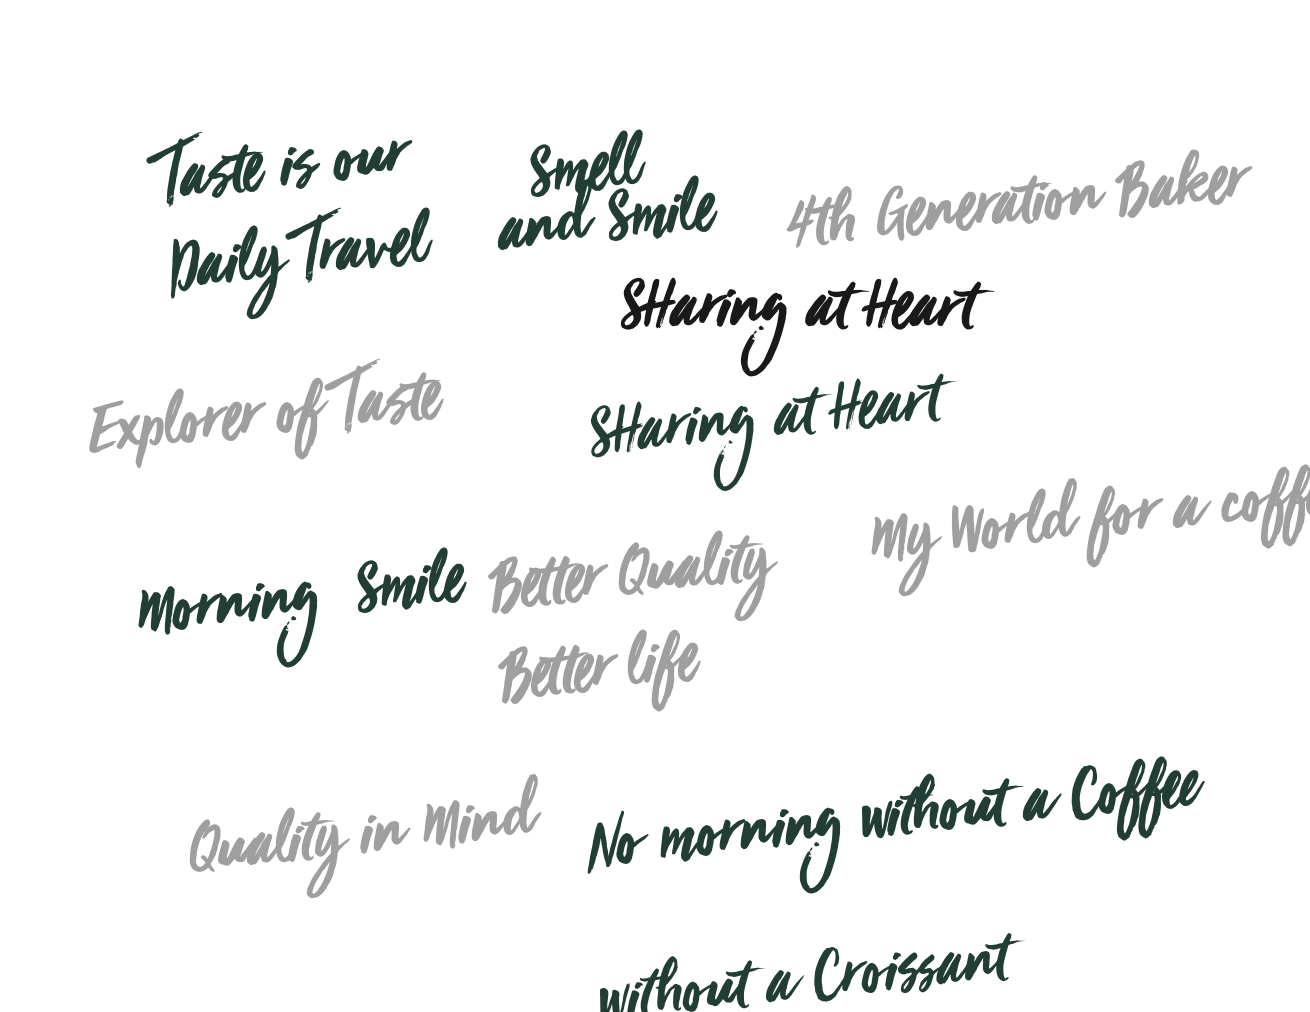 Taste is our
Daily Travel
Smell
and Smile
4th Generation Baker
SHaring at Heart
Explorer of Taste
SHaring at Heart
My World for a
Morning Smile
Better Quality
Better life
Quality in Mind
No morning without a Coffee
without a Croissant